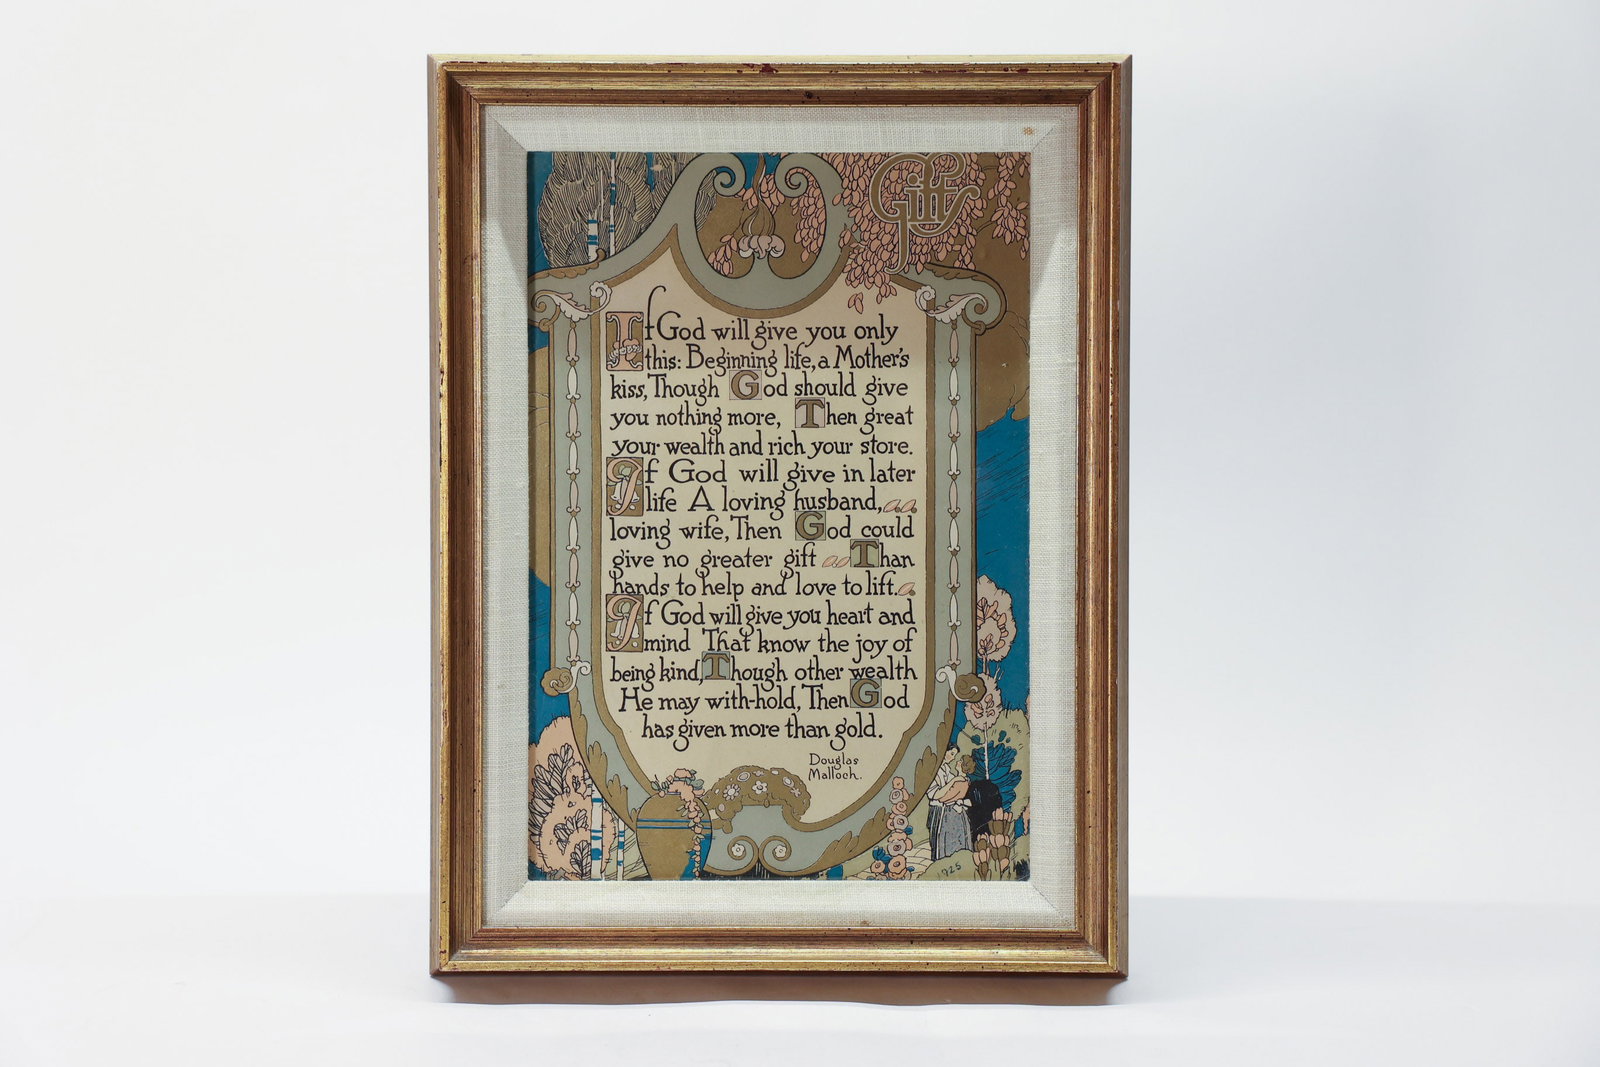 Gift
If God will give you only
this: Beginning life, a Mother's
kiss, Though God should give
you nothing more, Then great
your wealth and rich your store.
If God will give in later
life A loving husband,
loving wife, Then God could
give no greater gift Than
hands to help and love to lift.
If God will give you heart and
mind That know the joy of
being kind, Though other wealth
He may with-hold, Then God
has given more than gold.
Douglas
Malloch.
1925